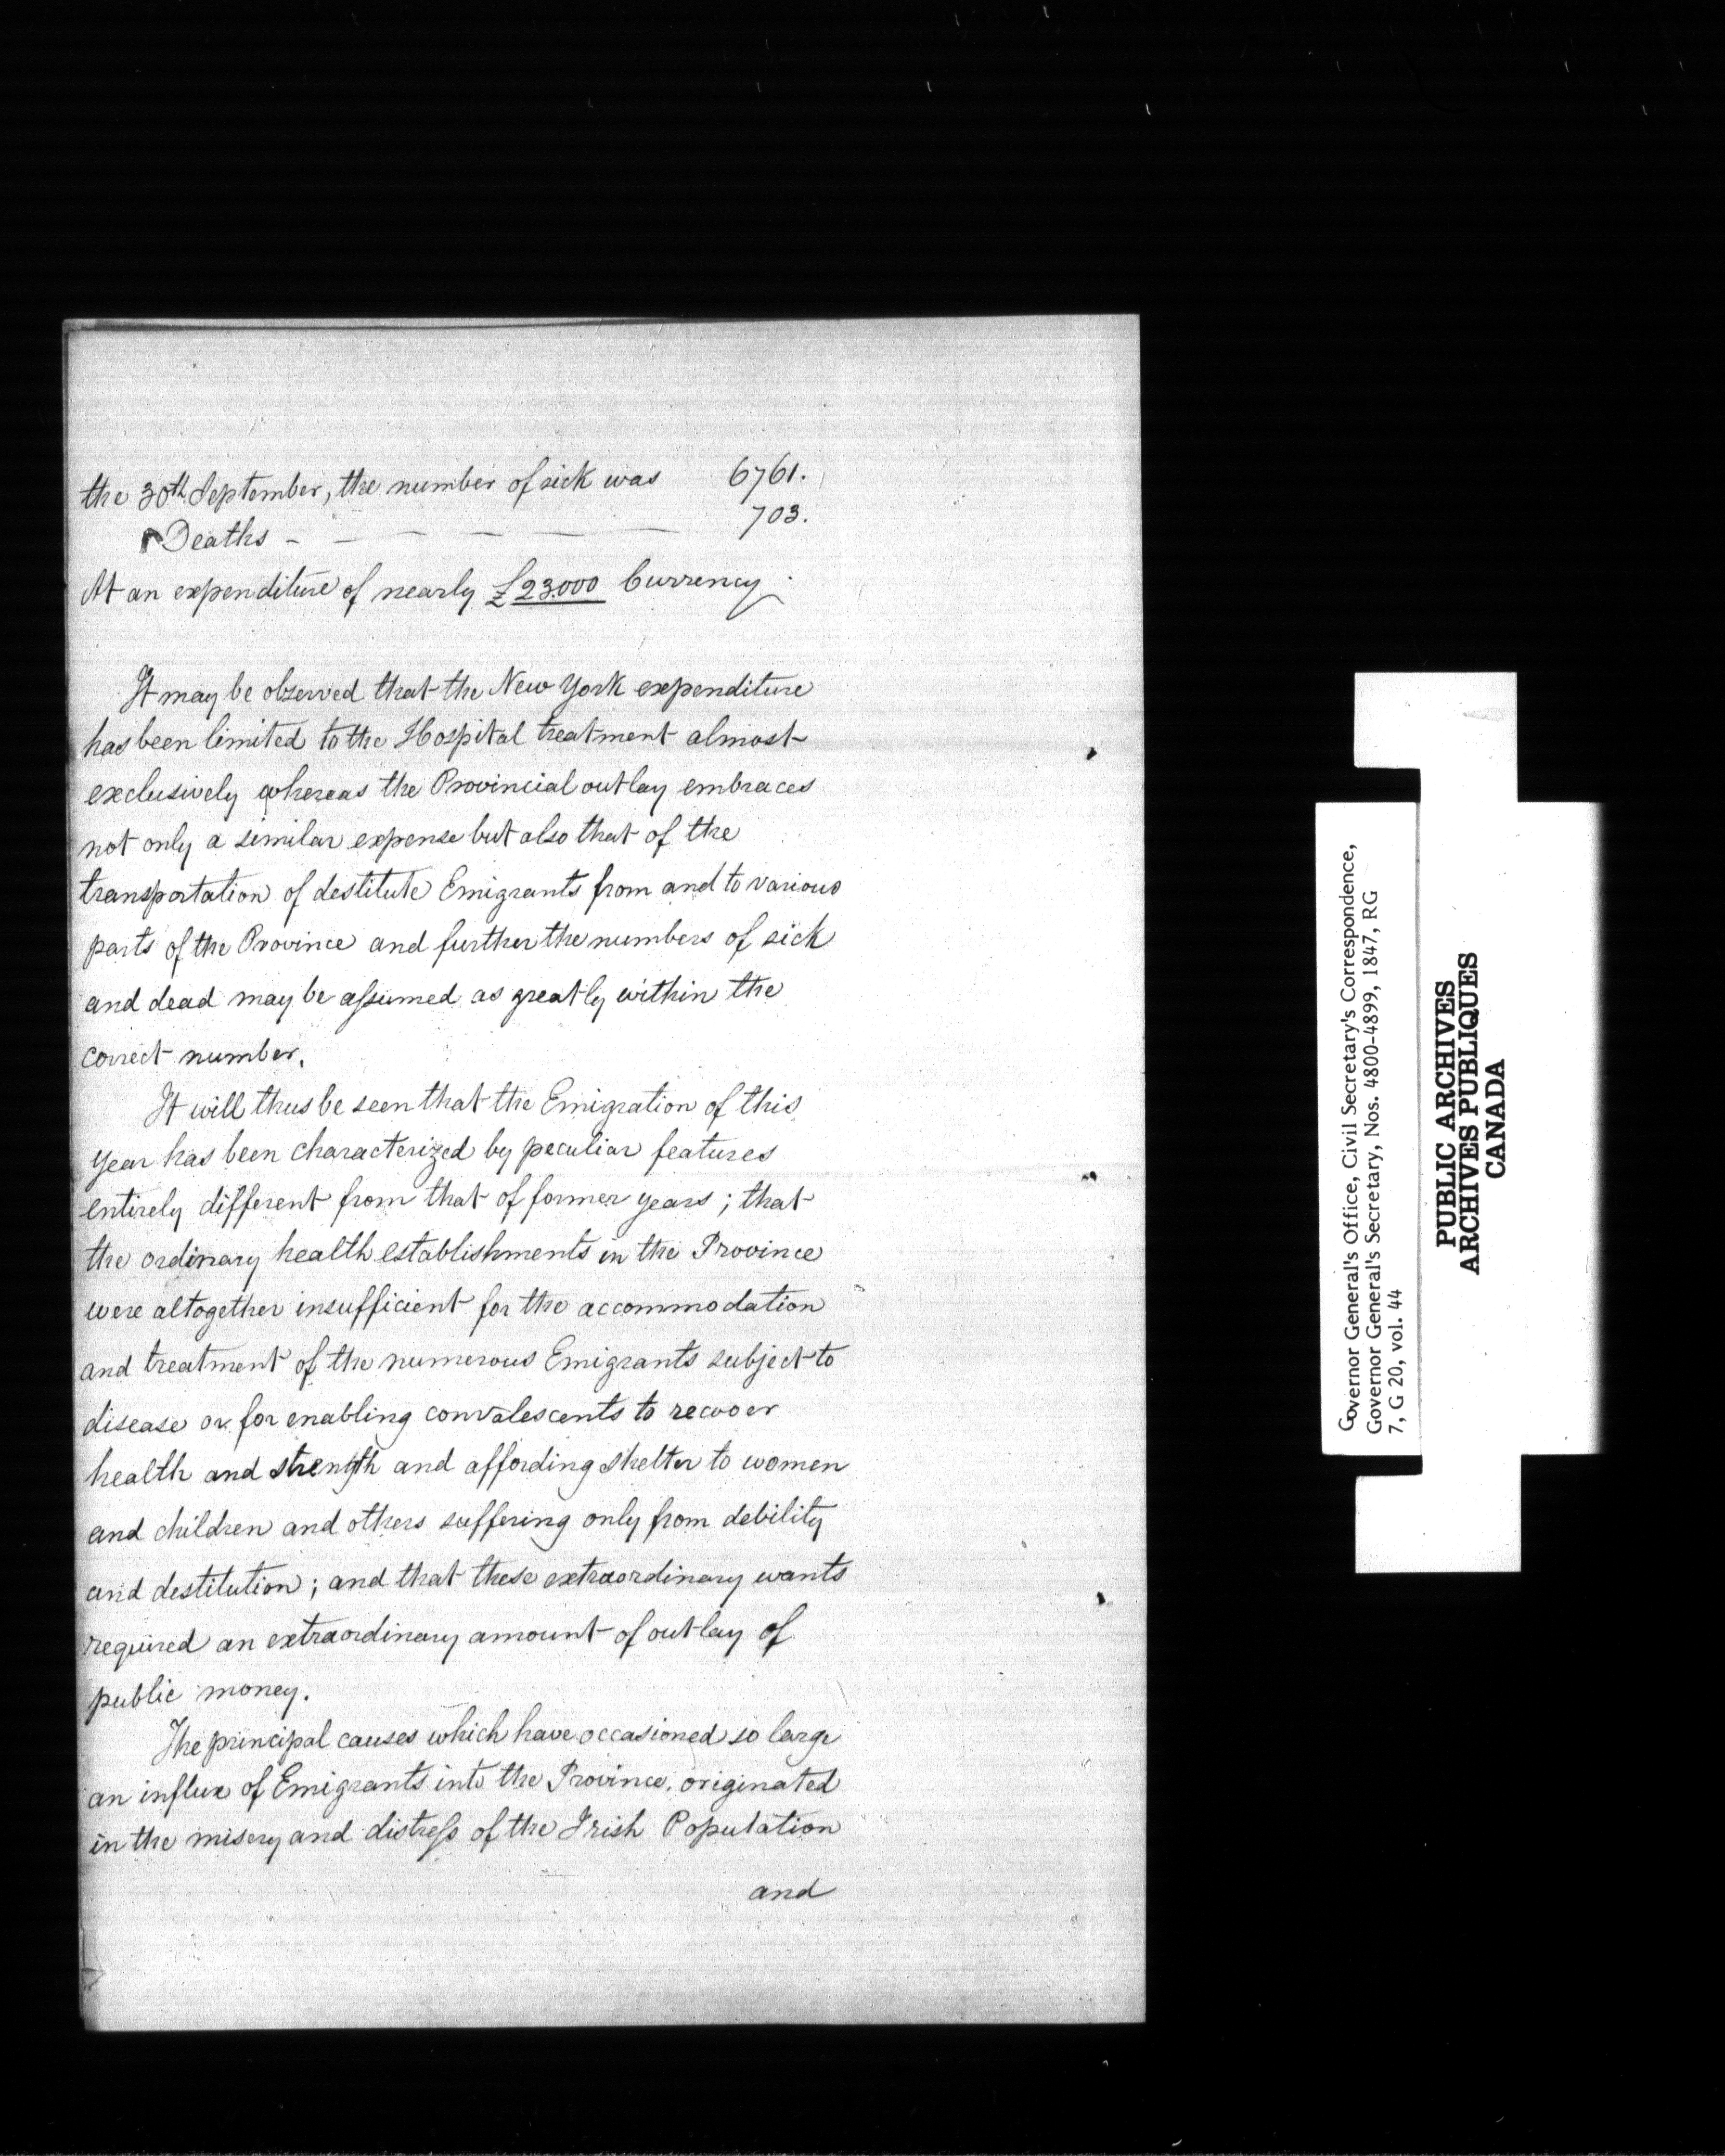 the 30th September, the number of sick was 6761.
Deaths - - - - - - 703.
At an expenditure of nearly £23.000 Currency.
It may be observed that the New York expenditure
has been limited to the Hospital treatment almost
exclusively whereas the Provincial outlay embraces
not only a similar expense but also that of the
transportation of destitute Emigrants from and to various
parts of the Province and further the numbers of sick
and dead may be assumed as greatly within the
correct number.
It will thus be seen that the Emigration of this
year has been characterized by peculiar features
entirely different from that of former years; that
the ordinary health establishments in the Province
were altogether insufficient for the accommodation
and treatment of the numerous Emigrants subject to
disease or for enabling convalescents to recover
health and strength and affording shelter to women
and children and others suffering only from debility
and destitution; and that these extraordinary wants
required an extraordinary amount of outlay of
public money.
The principal causes which have occasioned so large
an influx of Emigrants into the Province, originated
in the misery and distress of the Irish Population
and
Governor General's Office, Civil Secretary's Correspondence,
Governor General's Secretary, Nos. 4800-4899, 1847, RG
7, G 20, vol. 44
PUBLIC ARCHIVES
ARCHIVES PUBLIQUES
CANADA